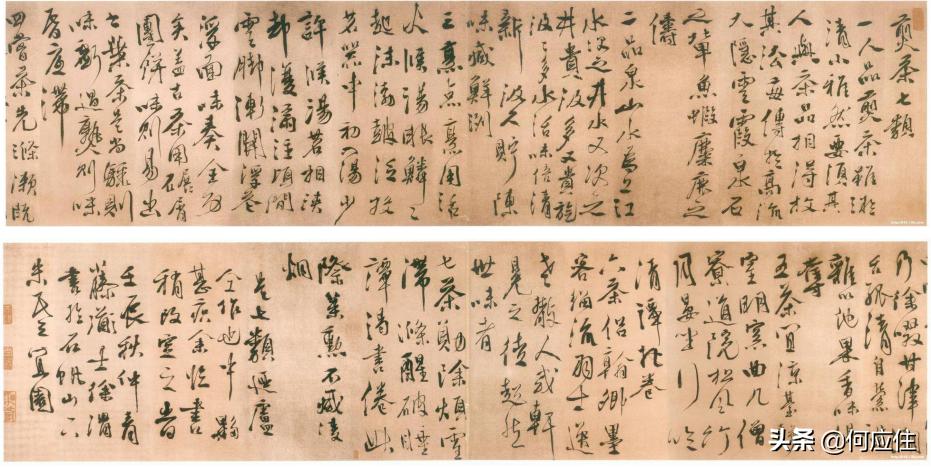 煎茶七類
一人品煎茶雖凝
清小雅然要須其
人與茶品相得故
其法每傳於高流
大隱雲霞泉石
之輩魚蝦麋鹿之
儔
二品泉山水為上江
水次之井水又次之
井貴汲多又貴旋
汲汲多水活味倍清
新汲久貯陳
味減鮮冽
三烹點烹用活
火候湯眼鱗鱗
起沫浡鼓泛投
茗器中初入湯少
許候湯茗相浹
却復滿注頃間
雲腳漸開浮花
浮面味奏全功
矣蓋古茶用碾屑
團餅味則易出
今葉茶是尚驟則
味虧過熟則味
昏底滯
四嘗茶先滌漱既
乃徐啜甘津潮
舌孤清自縈設
雜以他果香味俱
奪
五茶宜涼臺靜
室明窗曲几僧
寮道院松風竹
月晏坐行吟
清譚把卷
六茶侶翰卿墨
客緇流羽士逸
老散人或軒
冕之徒超然
世味者
七茶勳除煩雪
滯滌醒破睡
譚渴書倦此
際策勳不減凌
煙
是七類乃盧
仝作也中夥
甚疾余臨書
稍改定之時
壬辰秋仲青
藤道士徐渭
書於石帆山下
朱氏之宜園
头条 @何应住